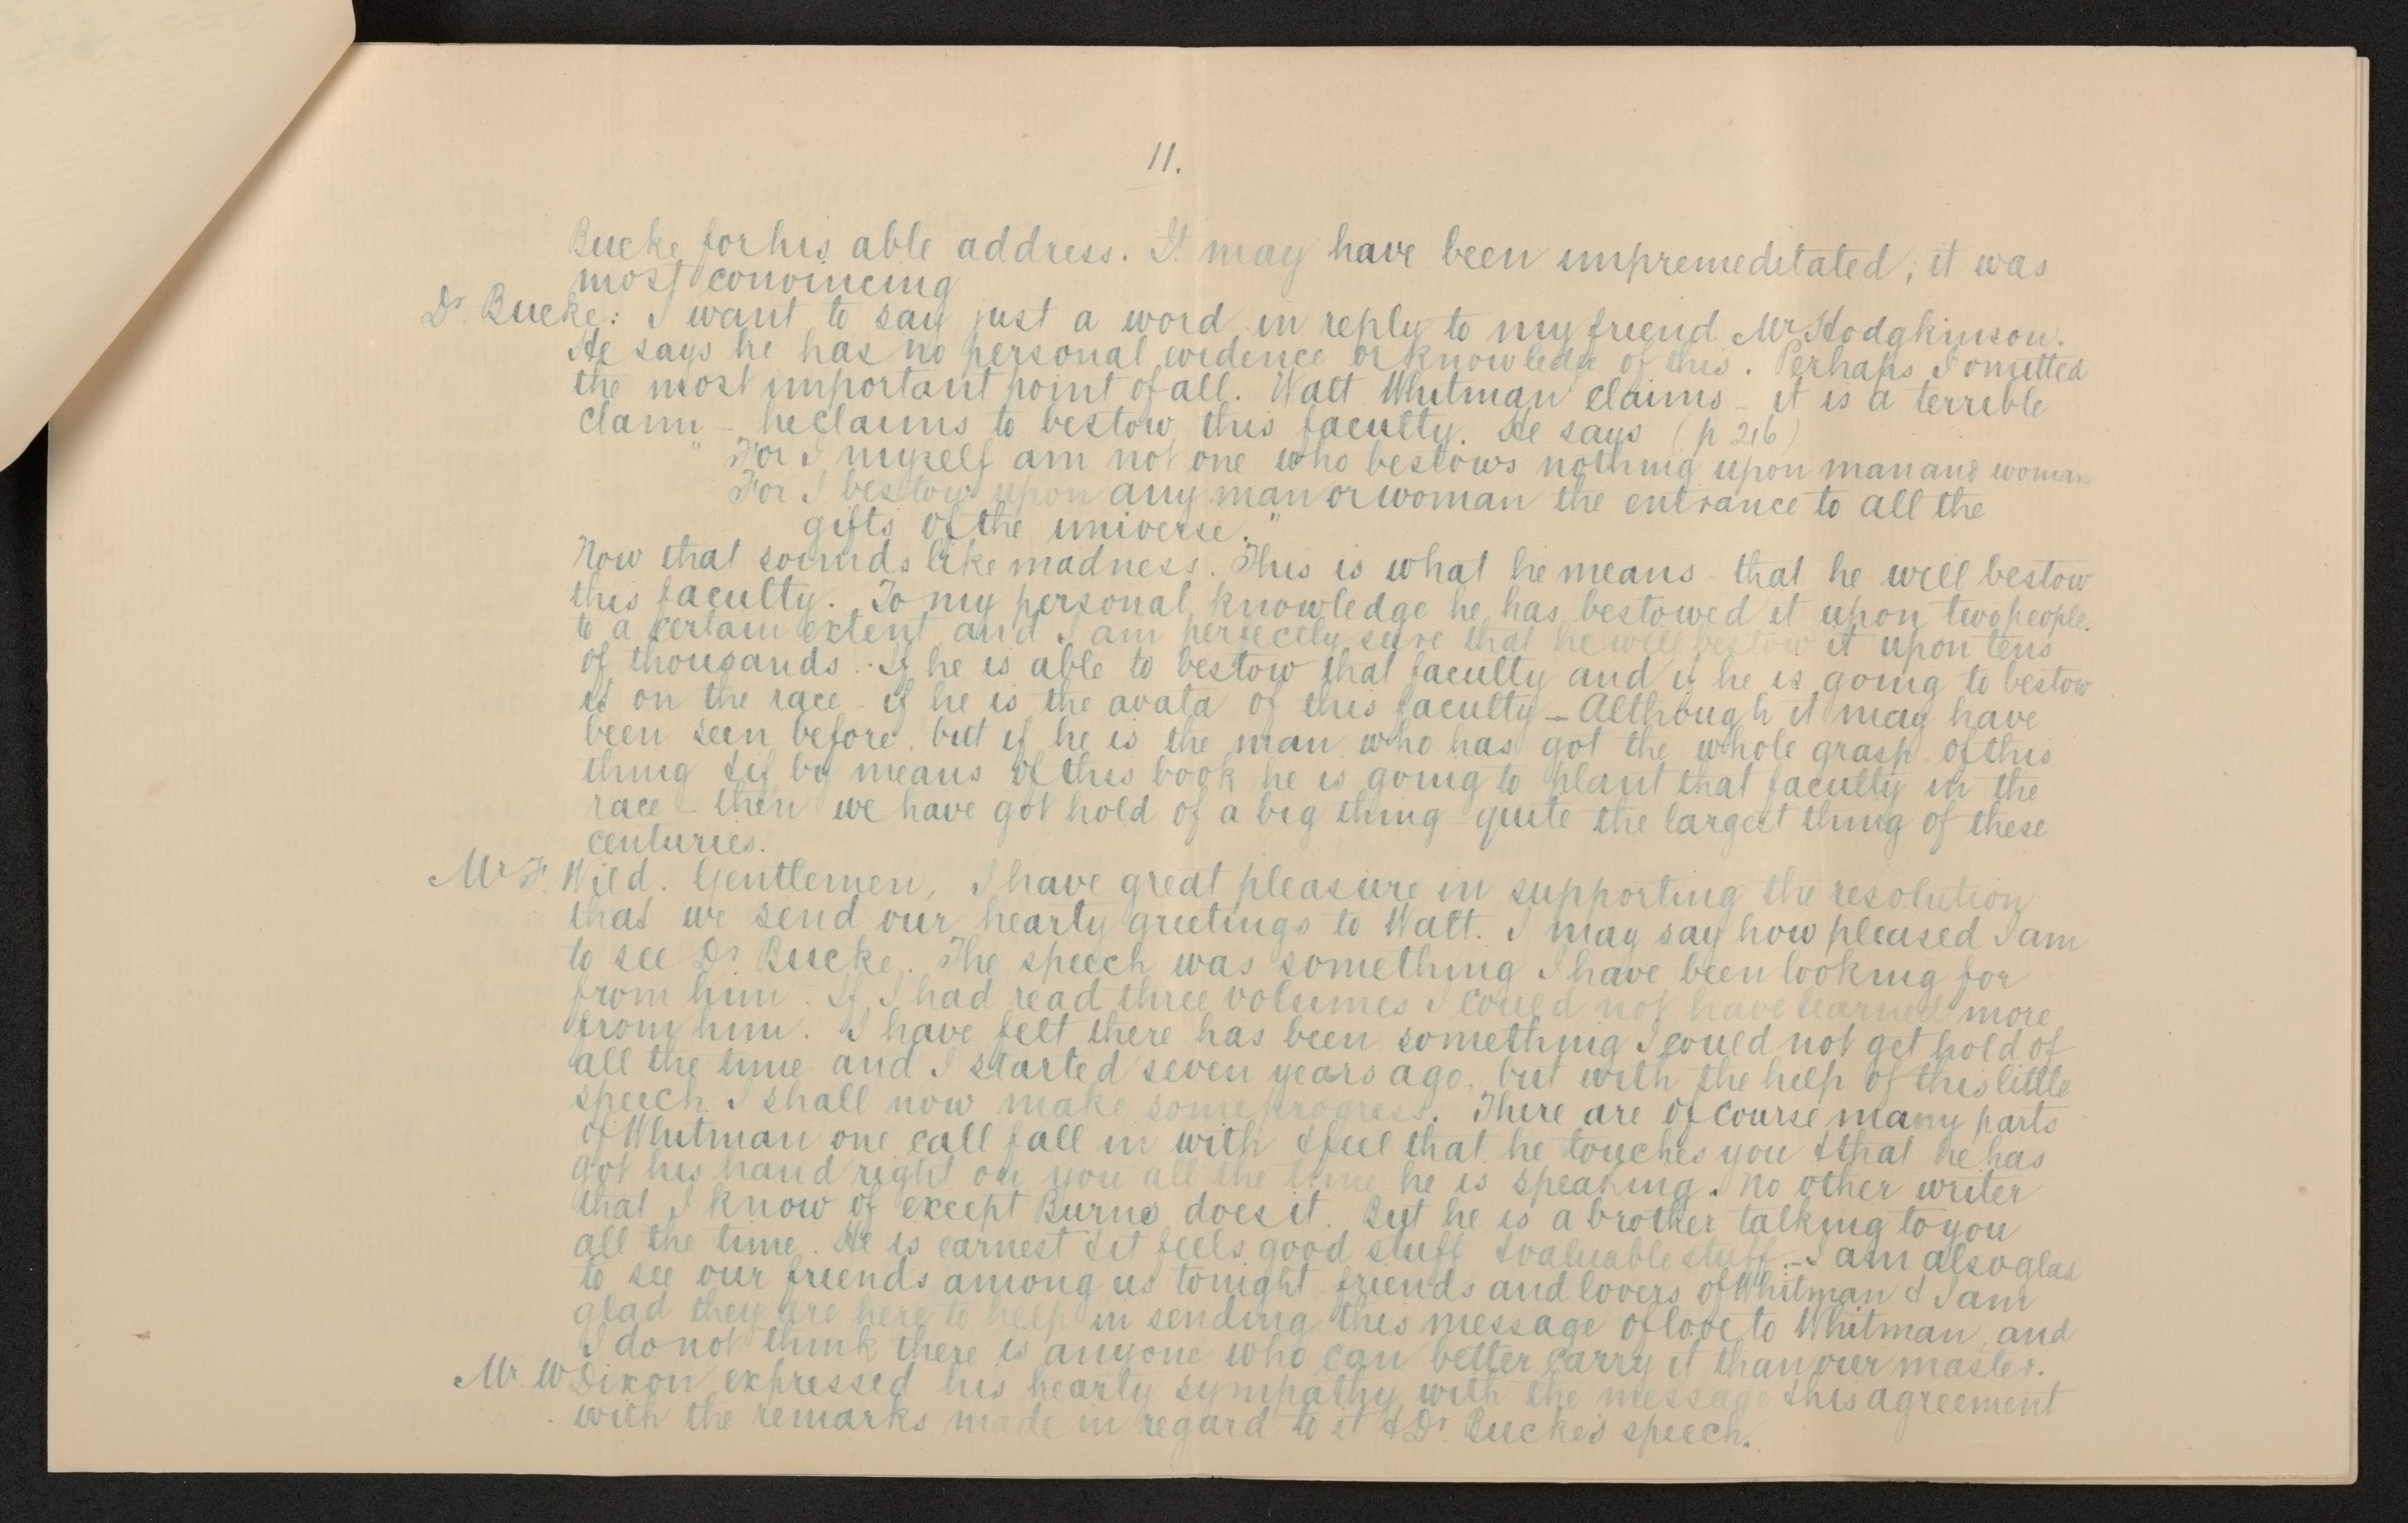 11.
Bucke for his able address. It may have been unpremeditated; it was
most convincing
Dr. Bucke: I want to say just a word in reply to my friend Mr Hodgkinson.
He says he has no personal evidence or knowledge of this. Perhaps I omitted
the most important point of all. Walt Whitman claims - it is a terrible
claim - he claims to bestow this faculty. He says (p 216)
"For I myself am not one who bestows nothing upon man and woman
For I bestow upon any man or woman the entrance to all the
gifts of the universe."
Now that sounds like madness. This is what he means - that he will bestow
this faculty. To my personal knowledge he has bestowed it upon two people.
to a certain extent and I am perfectly sure that he will bestow it upon tens
of thousands. If he is able to bestow that faculty and if he is going to bestow
it on the race - if he is the avata of this faculty - Although it may have
been seen before, but if he is the man who has got the whole grasp of this
thing & if by means of this book he is going to plant that faculty in the
race - then we have got hold of a big thing - quite the largest thing of these
centuries.
Mr F. Wild. Gentlemen, I have great pleasure in supporting the resolution
that we send our hearty greetings to Walt. I may say how pleased I am
to see Dr. Bucke. The speech was something I have been looking for
from him. If I had read three volumes I could not have learned more
from him. I have felt there has been something I could not get hold of
all the time and I started seven years ago, but with the help of this little
speech I shall now make some progress. There are of course many parts
of Whitman one call fall in with & feel that he touches you & that he has
got his hand right on you all the time he is speaking. No other writer
that I know of except Burns does it. But he is a brother talking to you
all the time. He is earnest & it feels good stuff & valuable stuff. - I am also glad
to see our friends among us tonight - friends and lovers of Whitman & I am
glad they are here to help in sending this message of love to Whitman, and
I do not think there is anyone who can better carry it than our master.
Mr. W Dixon expressed his hearty sympathy with the message & his agreement
with the remarks made in regard to it & Dr. Bucke's speech.